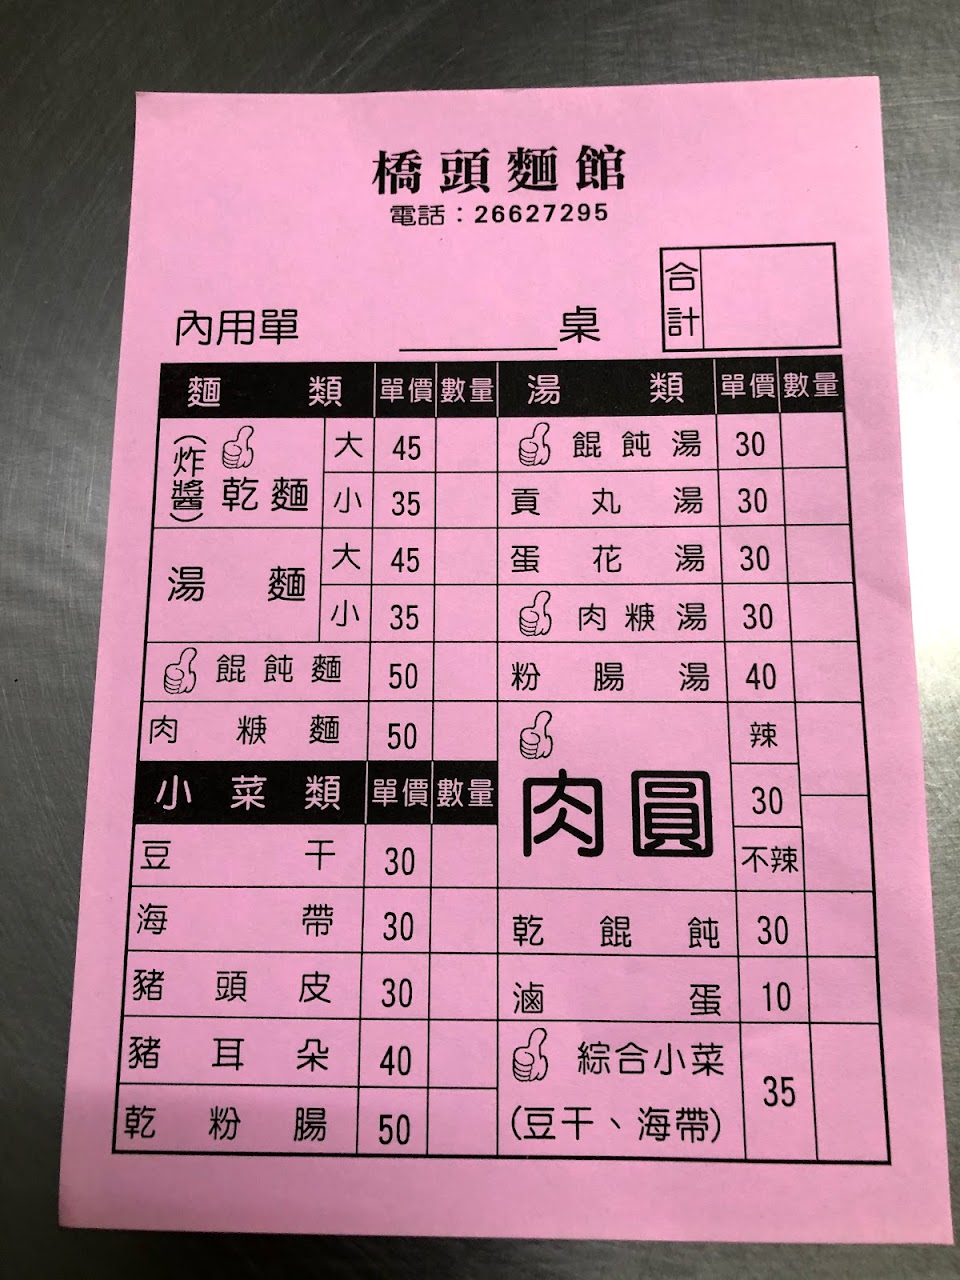 橋頭麵館
電話：26627295
合計
內用單 ＿＿＿＿桌
麵類 單價 數量 湯類 單價 數量
(炸醬)乾麵 大 45
小 35
湯麵 大 45
小 35
餛飩麵 50
肉糠麵 50
小菜類 單價 數量
豆干 30
海帶 30
豬頭皮 30
豬耳朵 40
乾粉腸 50
餛飩湯 30
貢丸湯 30
蛋花湯 30
肉糠湯 30
粉腸湯 40
肉圓 辣 30 不辣
乾餛飩 30
滷蛋 10
綜合小菜 35
(豆干、海帶)